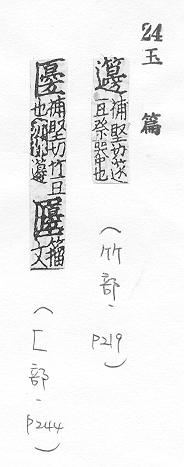 24 玉篇
籩 補堅切籩豆祭器也
(竹部、P219)
補堅切竹豆也亦作籩 籀文
(匚部、P244)